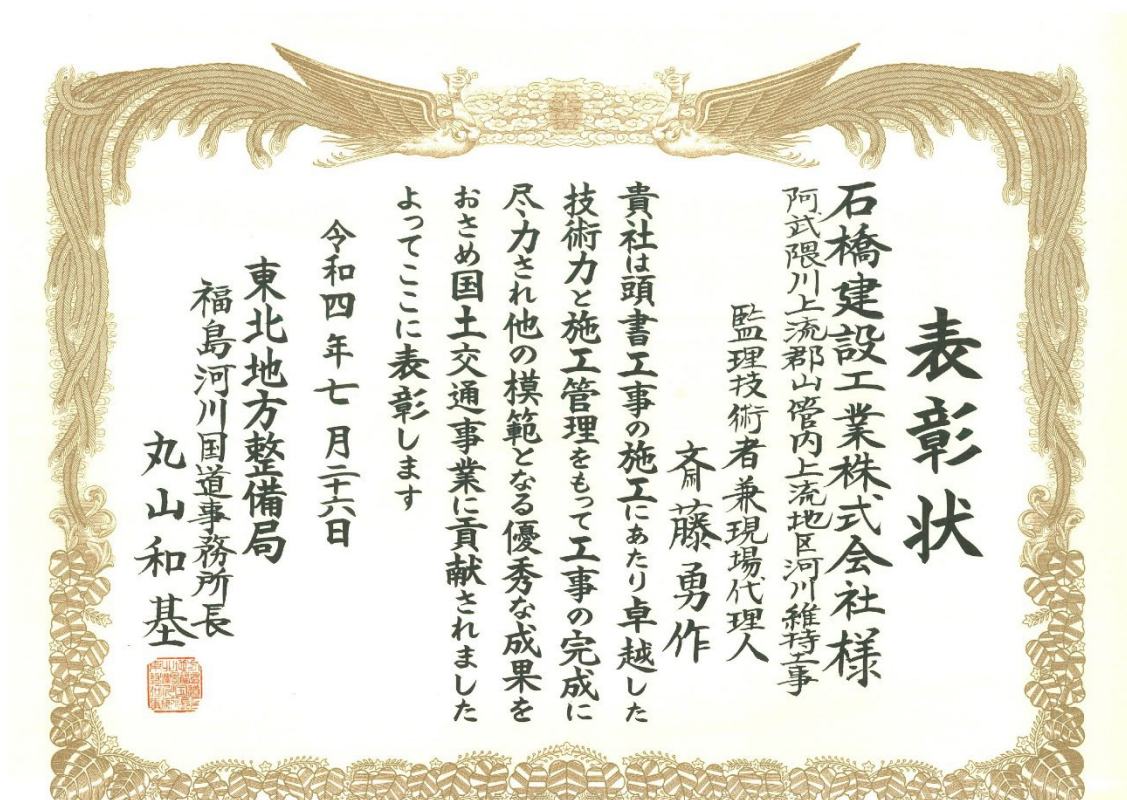 表彰状
石橋建設工業株式会社様
阿武隈川上流郡山管内上流地区河川維持工事
監理技術者兼現場代理人
斎藤勇作
貴社は頭書工事の施工にあたり卓越した
技術力と施工管理をもって工事の完成に
尽力され他の模範となる優秀な成果を
おさめ国土交通事業に貢献されました
よってここに表彰します
令和四年七月二十六日
東北地方整備局
福島河川国道事務所長
丸山和基